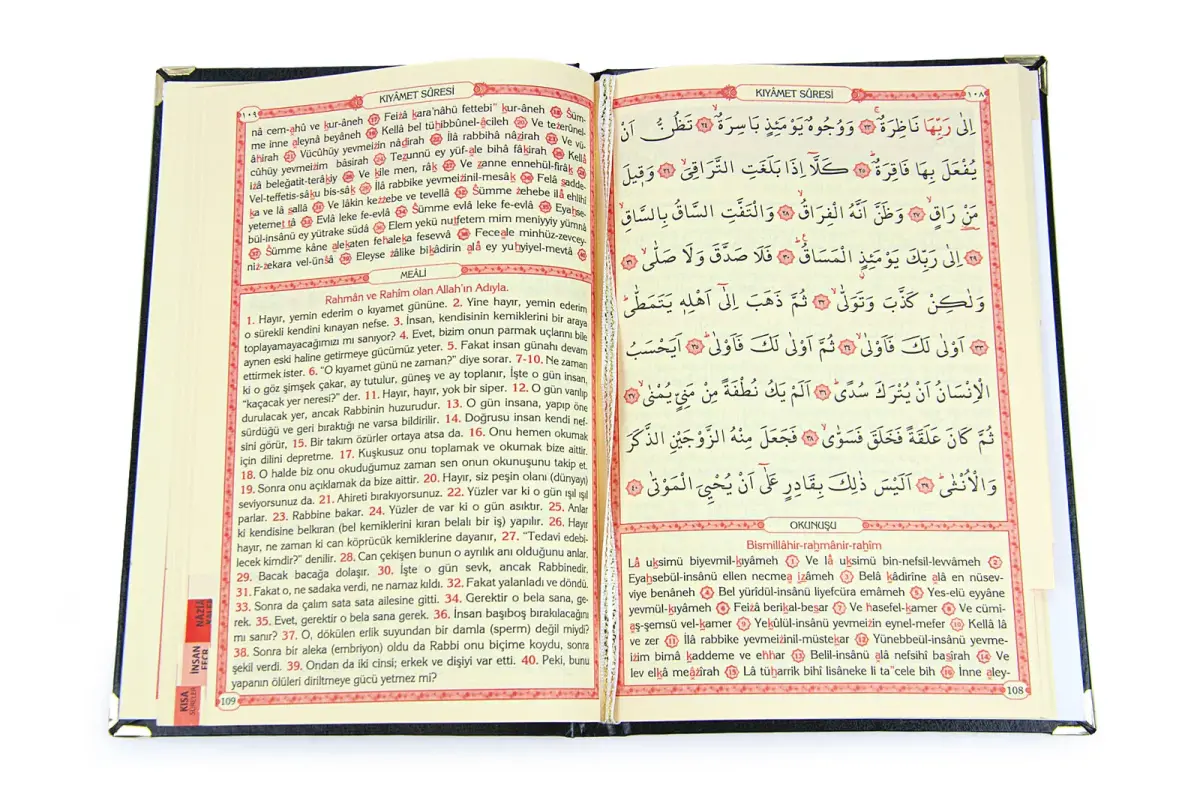 KIYÂMET SÛRESİ
١٠٨
اِلٰى رَبِّهَا نَاظِرَةٌۚ ﴿٢٣﴾ وَوُجُوهٌ يَوْمَئِذٍ بَاسِرَةٌۙ ﴿٢٤﴾ تَظُنُّ اَنْ
يُفْعَلَ بِهَا فَاقِرَةٌۜ ﴿٢٥﴾ كَلَّٓا اِذَا بَلَغَتِ التَّرَاقِيَۙ ﴿٢٦﴾ وَق۪يلَ
مَنْ رَاقٍۙ ﴿٢٧﴾ وَظَنَّ اَنَّهُ الْفِرَاقُۙ ﴿٢٨﴾ وَالْتَفَّتِ السَّاقُ بِالسَّاقِۙ
﴿٢٩﴾ اِلٰى رَبِّكَ يَوْمَئِذٍ الْمَسَاقُۜ ﴿٣٠﴾ فَلَا صَدَّقَ وَلَا صَلّٰىۙ ﴿٣١﴾
وَلٰكِنْ كَذَّبَ وَتَوَلّٰىۙ ﴿٣٢﴾ ثُمَّ ذَهَبَ اِلٰٓى اَهْلِه۪ يَتَمَطّٰىۜ
﴿٣٣﴾ اَوْلٰى لَكَ فَاَوْلٰىۙ ﴿٣٤﴾ ثُمَّ اَوْلٰى لَكَ فَاَوْلٰىۜ ﴿٣٥﴾ اَيَحْسَبُ
الْاِنْسَانُ اَنْ يُتْرَكَ سُدًىۜ ﴿٣٦﴾ اَلَمْ يَكُ نُطْفَةً مِنْ مَنِيٍّ يُمْنٰىۙ ﴿٣٧﴾
ثُمَّ كَانَ عَلَقَةً فَخَلَقَ فَسَوّٰىۙ ﴿٣٨﴾ فَجَعَلَ مِنْهُ الزَّوْجَيْنِ الذَّكَرَ
وَالْاُنْثٰىۜ ﴿٣٩﴾ اَلَيْسَ ذٰلِكَ بِقَادِرٍ عَلٰٓى اَنْ يُحْيِيَ الْمَوْتٰى ﴿٤٠﴾
OKUNUŞU
Bismillâhir-raḥmânir-raḥîm
Lâ uḳsimü biyevmil-ḳıyâmeh (1) Ve lâ uḳsimü bin-nefsil-levvâmeh (2)
Eyaḥsebül-insânü ellen necmea iẓâmeh (3) Belâ kâdirîne alâ en nüsev-
viye benâneh (4) Bel yürîdül-insânü liyefcüra emâmeh (5) Yes-elü eyyâne
yevmül-kıyâmeh (6) Feizâ beriḳal-beṣar (7) Ve hasefel-ḳamer (8) Ve cümi-
aş-şemsü vel-ḳamer (9) Yeḳûlül-insânü yevmeizin eynel-mefer (10) Kellâ lâ
ve zer (11) İlâ rabbike yevmeizinil-müsteḳar (12) Yünebbeül-insânü yevme-
izim bimâ ḳaddeme ve eḫḫar (13) Belil-insânü alâ nefsihî baṣîrah (14) Ve
lev elḳâ meâẕîrah (15) Lâ tüḥarrik bihî lisâneke li ta"cele bih (16) İnne aley-
108
KIYÂMET SÛRESİ
١٠٩
nâ cem-ahû ve ḳur-âneh (17) Feizâ ḳara'nâhü fettebi" ḳur-âneh (18) Süm-
me inne aleynâ beyâneh (19) Kellâ bel tüḥibbûnel-âcileh (20) Ve teẕerûnel-
âḫirah (21) Vücûhüy yevmeizin nâḍirah (22) İlâ rabbihâ nâẓirah (23) Ve vü-
cûhüy yevmeizim bâsirah (24) Teẓunnü ey yüf-ale bihâ fâḳirah (25) Kellâ
izâ beleğatit-terâḳiy (26) Ve ḳîle men, râḳ (27) Ve ẓanne ennehül-firâḳ (28)
Vel-teffetis-sâḳu bis-sâḳ (29) İlâ rabbike yevmeizinil-mesâḳ (30) Felâ ṣadde-
ḳa ve lâ ṣallâ (31) Ve lâkin keẕẕebe ve tevellâ (32) Sümme ẕehebe ilâ ehlihî
yetemeṭṭâ (33) Evlâ leke fe-evlâ (34) Sümme evlâ leke fe-evlâ (35) Eyaḥse-
bül-insânü ey yütrake südâ (36) Elem yekü nuṭfetem mim meniyyiy yümnâ
(37) Sümme kâne aleḳaten feḫaleḳa fesevvâ (38) Feceale minhüz-zevcey-
niz-zekara vel-ünsâ (39) Eleyse ẕâlike biḳâdirin alâ ey yuḥyiyel-mevtâ (40)
MEÂLİ
Rahmân ve Rahîm olan Allah'ın Adıyla.
1. Hayır, yemin ederim o kıyamet gününe. 2. Yine hayır, yemin ederim
o sürekli kendini kınayan nefse. 3. İnsan, kendisinin kemiklerini bir araya
toplayamayacağımızı mı sanıyor? 4. Evet, bizim onun parmak uçlarını bile
aynen eski haline getirmeye gücümüz yeter. 5. Fakat insan günahı devam
ettirmek ister. 6. "O kıyamet günü ne zaman?" diye sorar. 7-10. Ne zaman
ki o göz şimşek çakar, ay tutulur, güneş ve ay toplanır, İşte o gün insan,
"kaçacak yer neresi?" der. 11. Hayır, hayır, yok bir siper. 12. O gün varılıp
durulacak yer, ancak Rabbinin huzurudur. 13. O gün insana, yapıp öne
sürdüğü ve geri bıraktığı ne varsa bildirilir. 14. Doğrusu insan kendi nef-
sini görür, 15. Bir takım özürler ortaya atsa da. 16. Onu hemen okumak
için dilini depretme. 17. Kuşkusuz onu toplamak ve okumak bize aittir.
18. O halde biz onu okuduğumuz zaman sen onun okunuşunu takip et.
19. Sonra onu açıklamak da bize aittir. 20. Hayır, siz peşin olanı (dünyayı)
seviyorsunuz da. 21. Ahireti bırakıyorsunuz. 22. Yüzler var ki o gün ışıl ışıl
parlar. 23. Rabbine bakar. 24. Yüzler de var ki o gün asıktır. 25. Anlar
ki kendisine belkıran (bel kemiklerini kıran belalı bir iş) yapılır. 26. Hayır
hayır, ne zaman ki can köprücük kemiklerine dayanır, 27. "Tedavi edebi-
lecek kimdir?" denilir. 28. Can çekişen bunun o ayrılık anı olduğunu anlar.
29. Bacak bacağa dolaşır. 30. İşte o gün sevk, ancak Rabbinedir.
31. Fakat o, ne sadaka verdi, ne namaz kıldı. 32. Fakat yalanladı ve döndü.
33. Sonra da çalım sata sata ailesine gitti. 34. Gerektir o bela sana, ge-
rek. 35. Evet, gerektir o bela sana gerek. 36. İnsan başıboş bırakılacağını
mı sanır? 37. O, dökülen erlik suyundan bir damla (sperm) değil miydi?
38. Sonra bir aleka (embriyon) oldu da Rabbi onu biçime koydu, sonra
şekil verdi. 39. Ondan da iki cinsi; erkek ve dişiyi var etti. 40. Peki, bunu
yapanın ölüleri diriltmeye gücü yetmez mi?
109
NÂZİÂ
İNSAN
FECR
KISA
SURELER